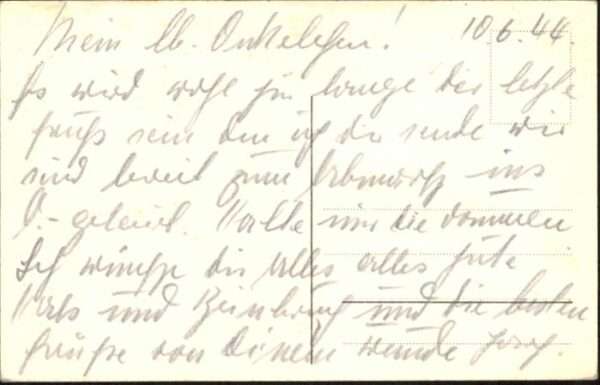 Mein lb. Onkelchen! 10.6.44.
Es wird wohl für lange der letzte
Gruß sein den ich dir sende wir
sind bereit zum Abmarsch ins
O.-gebiet. Halte mir die Daumen
Ich wünsche dir alles alles gute
Hals und Beinbruch und die besten
Grüße von Deinem